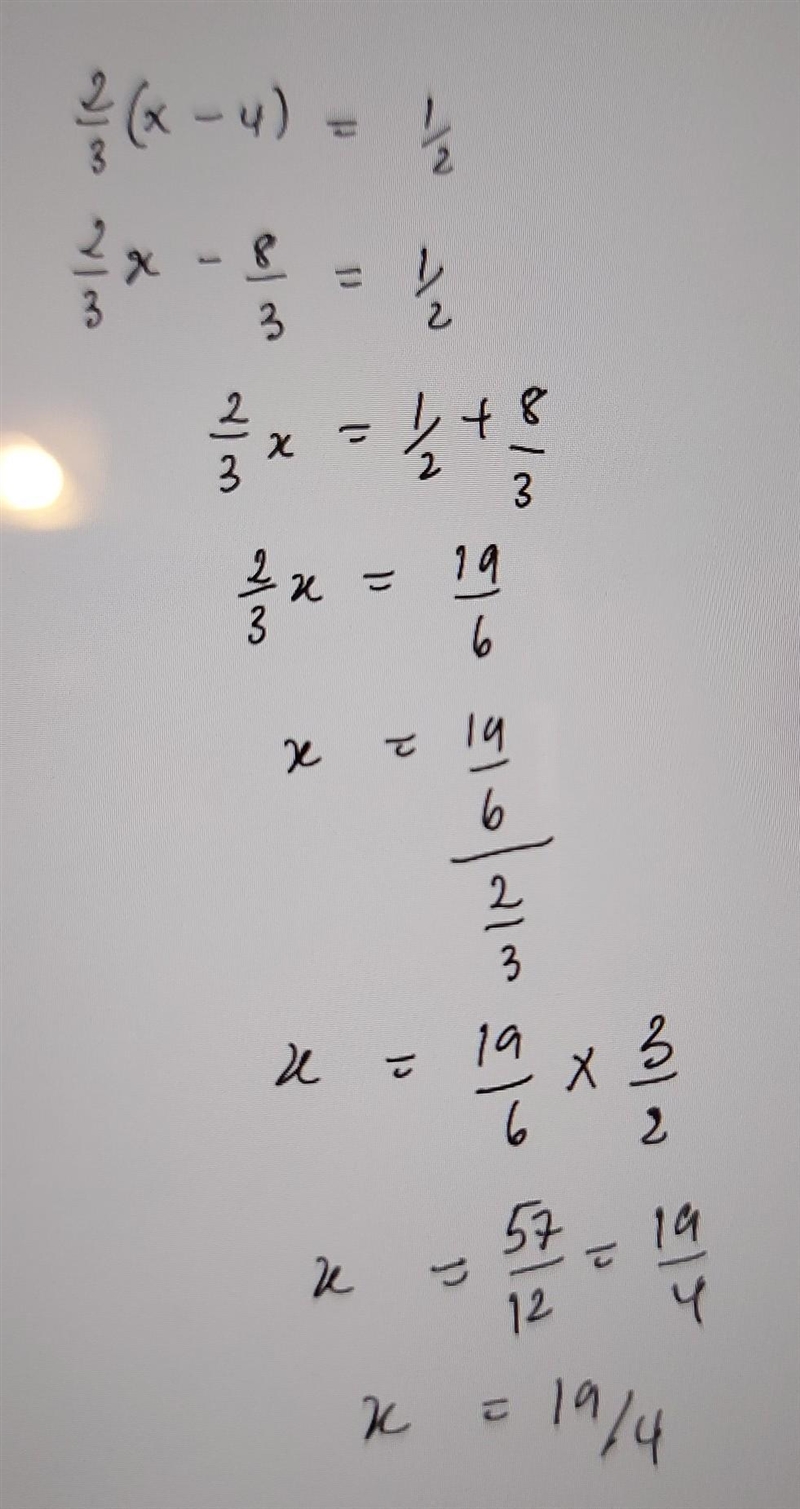 2/3(x - 4) = 1/2
2/3 x - 8/3 = 1/2
2/3 x = 1/2 + 8/3
2/3 x = 19/6
x = 19/6 / 2/3
x = 19/6 × 3/2
x = 57/12 = 19/4
x = 19/4